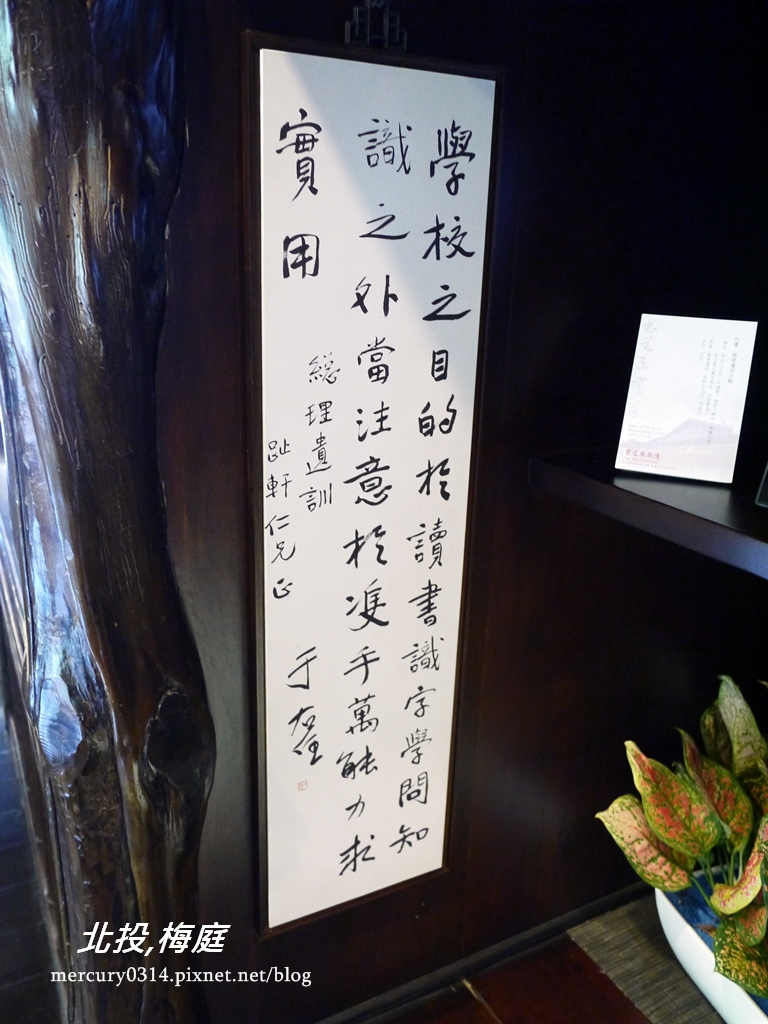 學校之目的於讀書識字學問知
識之外當注意於雙手萬能力求
實用
總理遺訓
趾軒仁兄正
于右任
北投,梅庭
mercury0314.pixnet.net/blog